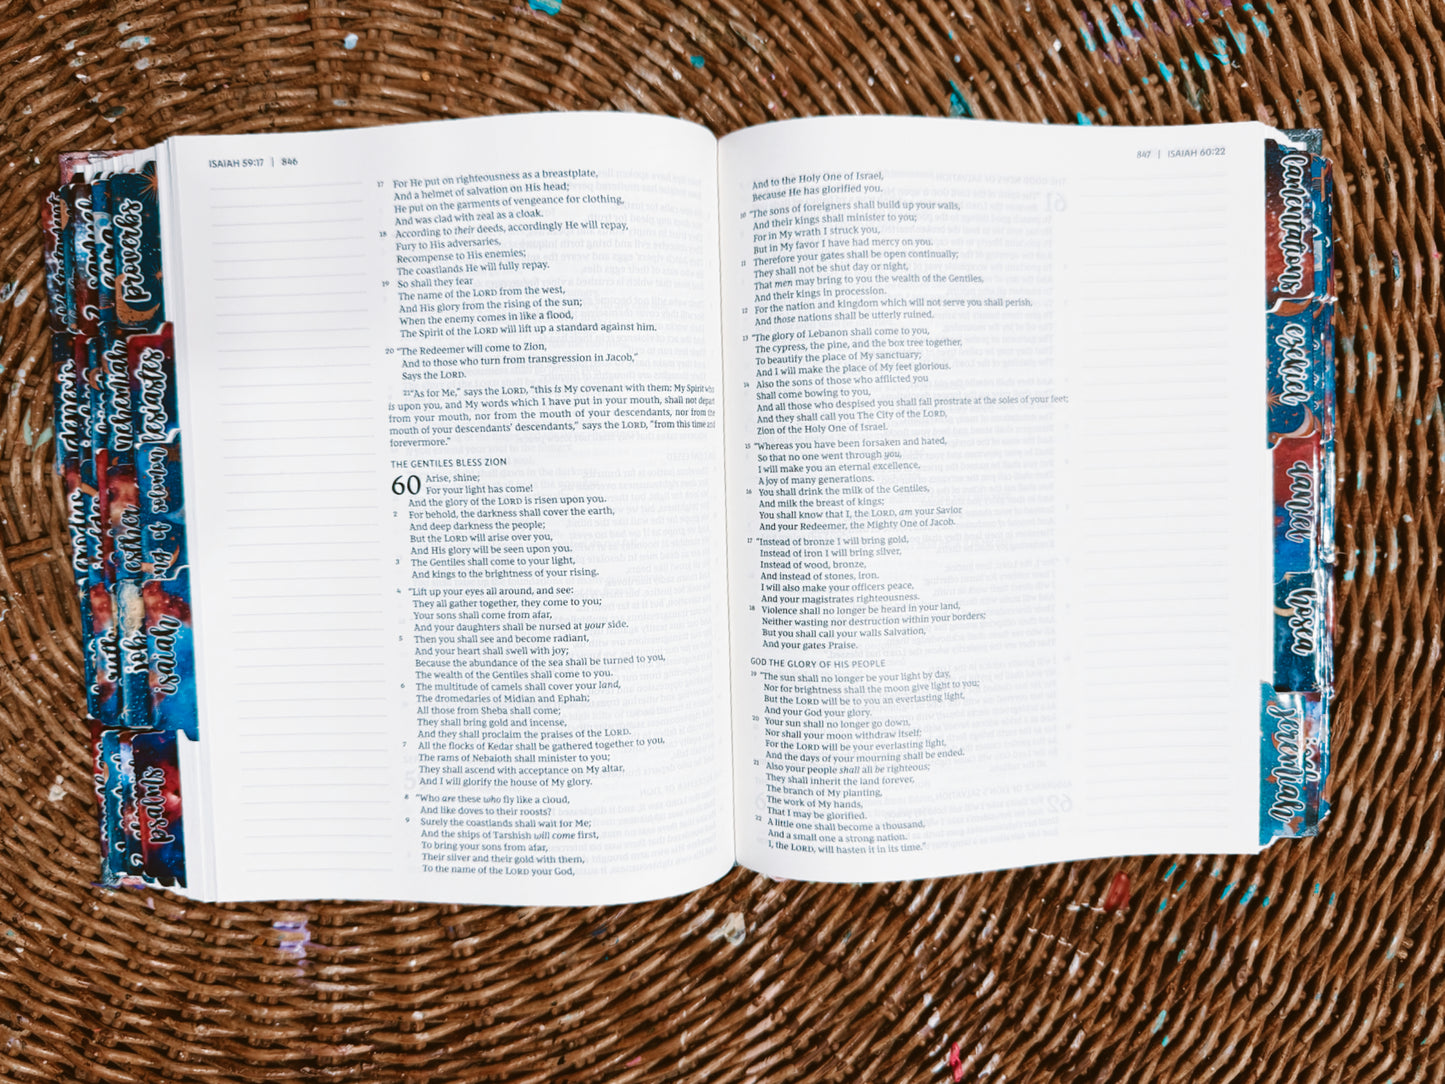 ISAIAH 59:17 | 846
17 For He put on righteousness as a breastplate,
And a helmet of salvation on His head;
He put on the garments of vengeance for clothing,
And was clad with zeal as a cloak.
18 According to their deeds, accordingly He will repay,
Fury to His adversaries,
Recompense to His enemies;
The coastlands He will fully repay.
19 So shall they fear
The name of the LORD from the west,
And His glory from the rising of the sun;
When the enemy comes in like a flood,
The Spirit of the LORD will lift up a standard against him.
20 “The Redeemer will come to Zion,
And to those who turn from transgression in Jacob,”
Says the LORD.
21“As for Me,” says the LORD, “this is My covenant with them: My Spirit who
is upon you, and My words which I have put in your mouth, shall not depart
from your mouth, nor from the mouth of your descendants, nor from the
mouth of your descendants’ descendants,” says the LORD, “from this time and
forevermore.”
THE GENTILES BLESS ZION
60 Arise, shine;
For your light has come!
And the glory of the LORD is risen upon you.
2 For behold, the darkness shall cover the earth,
And deep darkness the people;
But the LORD will arise over you,
And His glory will be seen upon you.
3 The Gentiles shall come to your light,
And kings to the brightness of your rising.
4 “Lift up your eyes all around, and see:
They all gather together, they come to you;
Your sons shall come from afar,
And your daughters shall be nursed at your side.
5 Then you shall see and become radiant,
And your heart shall swell with joy;
Because the abundance of the sea shall be turned to you,
The wealth of the Gentiles shall come to you.
6 The multitude of camels shall cover your land,
The dromedaries of Midian and Ephah;
All those from Sheba shall come;
They shall bring gold and incense,
And they shall proclaim the praises of the LORD.
7 All the flocks of Kedar shall be gathered together to you,
The rams of Nebaioth shall minister to you;
They shall ascend with acceptance on My altar,
And I will glorify the house of My glory.
8 “Who are these who fly like a cloud,
And like doves to their roosts?
9 Surely the coastlands shall wait for Me;
And the ships of Tarshish will come first,
To bring your sons from afar,
Their silver and their gold with them,
To the name of the LORD your God,
847 | ISAIAH 60:22
And to the Holy One of Israel,
Because He has glorified you.
10 “The sons of foreigners shall build up your walls,
And their kings shall minister to you;
For in My wrath I struck you,
But in My favor I have had mercy on you.
11 Therefore your gates shall be open continually;
They shall not be shut day or night,
That men may bring to you the wealth of the Gentiles,
And their kings in procession.
12 For the nation and kingdom which will not serve you shall perish,
And those nations shall be utterly ruined.
13 “The glory of Lebanon shall come to you,
The cypress, the pine, and the box tree together,
To beautify the place of My sanctuary;
And I will make the place of My feet glorious.
14 Also the sons of those who afflicted you
Shall come bowing to you,
And all those who despised you shall fall prostrate at the soles of your feet;
And they shall call you The City of the LORD,
Zion of the Holy One of Israel.
15 “Whereas you have been forsaken and hated,
So that no one went through you,
I will make you an eternal excellence,
A joy of many generations.
16 You shall drink the milk of the Gentiles,
And milk the breast of kings;
You shall know that I, the LORD, am your Savior
And your Redeemer, the Mighty One of Jacob.
17 “Instead of bronze I will bring gold,
Instead of iron I will bring silver,
Instead of wood, bronze,
And instead of stones, iron.
I will also make your officers peace,
And your magistrates righteousness.
18 Violence shall no longer be heard in your land,
Neither wasting nor destruction within your borders;
But you shall call your walls Salvation,
And your gates Praise.
GOD THE GLORY OF HIS PEOPLE
19 “The sun shall no longer be your light by day,
Nor for brightness shall the moon give light to you;
But the LORD will be to you an everlasting light,
And your God your glory.
20 Your sun shall no longer go down,
Nor shall your moon withdraw itself;
For the LORD will be your everlasting light,
And the days of your mourning shall be ended.
21 Also your people shall all be righteous;
They shall inherit the land forever,
The branch of My planting,
The work of My hands,
That I may be glorified.
22 A little one shall become a thousand,
And a small one a strong nation.
I, the LORD, will hasten it in its time.”
proverbs
ecclesiastes
song of solomon
isaiah
psalms
nehemiah
esther
job
lamentations
ezekiel
daniel
hosea
jeremiah